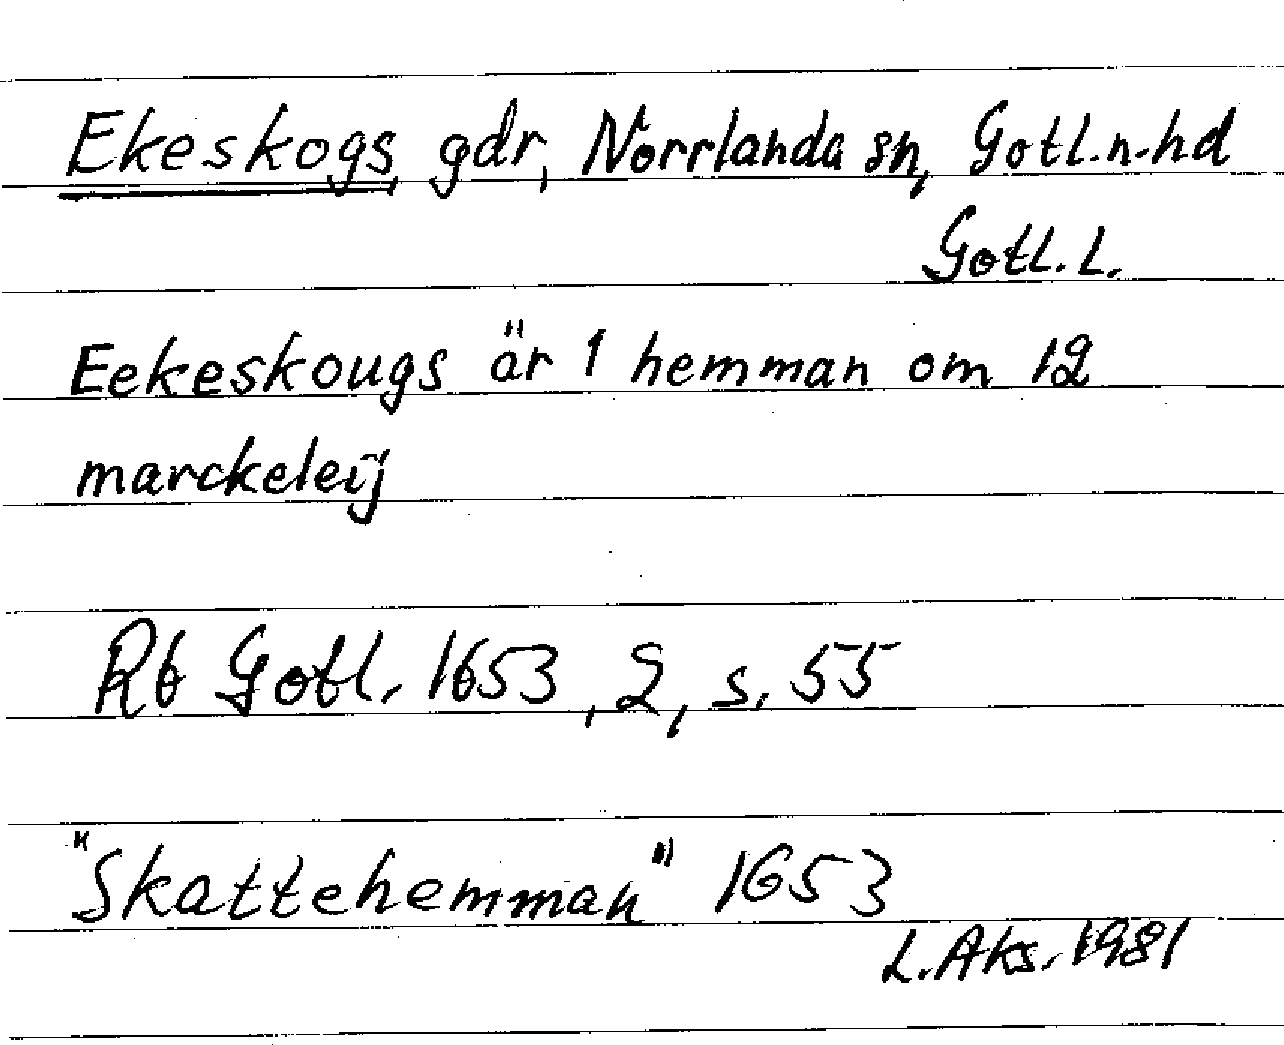 Ekeskogs, gdr, Norrlanda sn, Gotl.n.hd
Gotl.L.
Eekeskougs är 1 hemman om 12
marckeleij
Rb Gotl. 1653, 2, s. 55
"Skattehemman" 1653
L.Aks. 1981